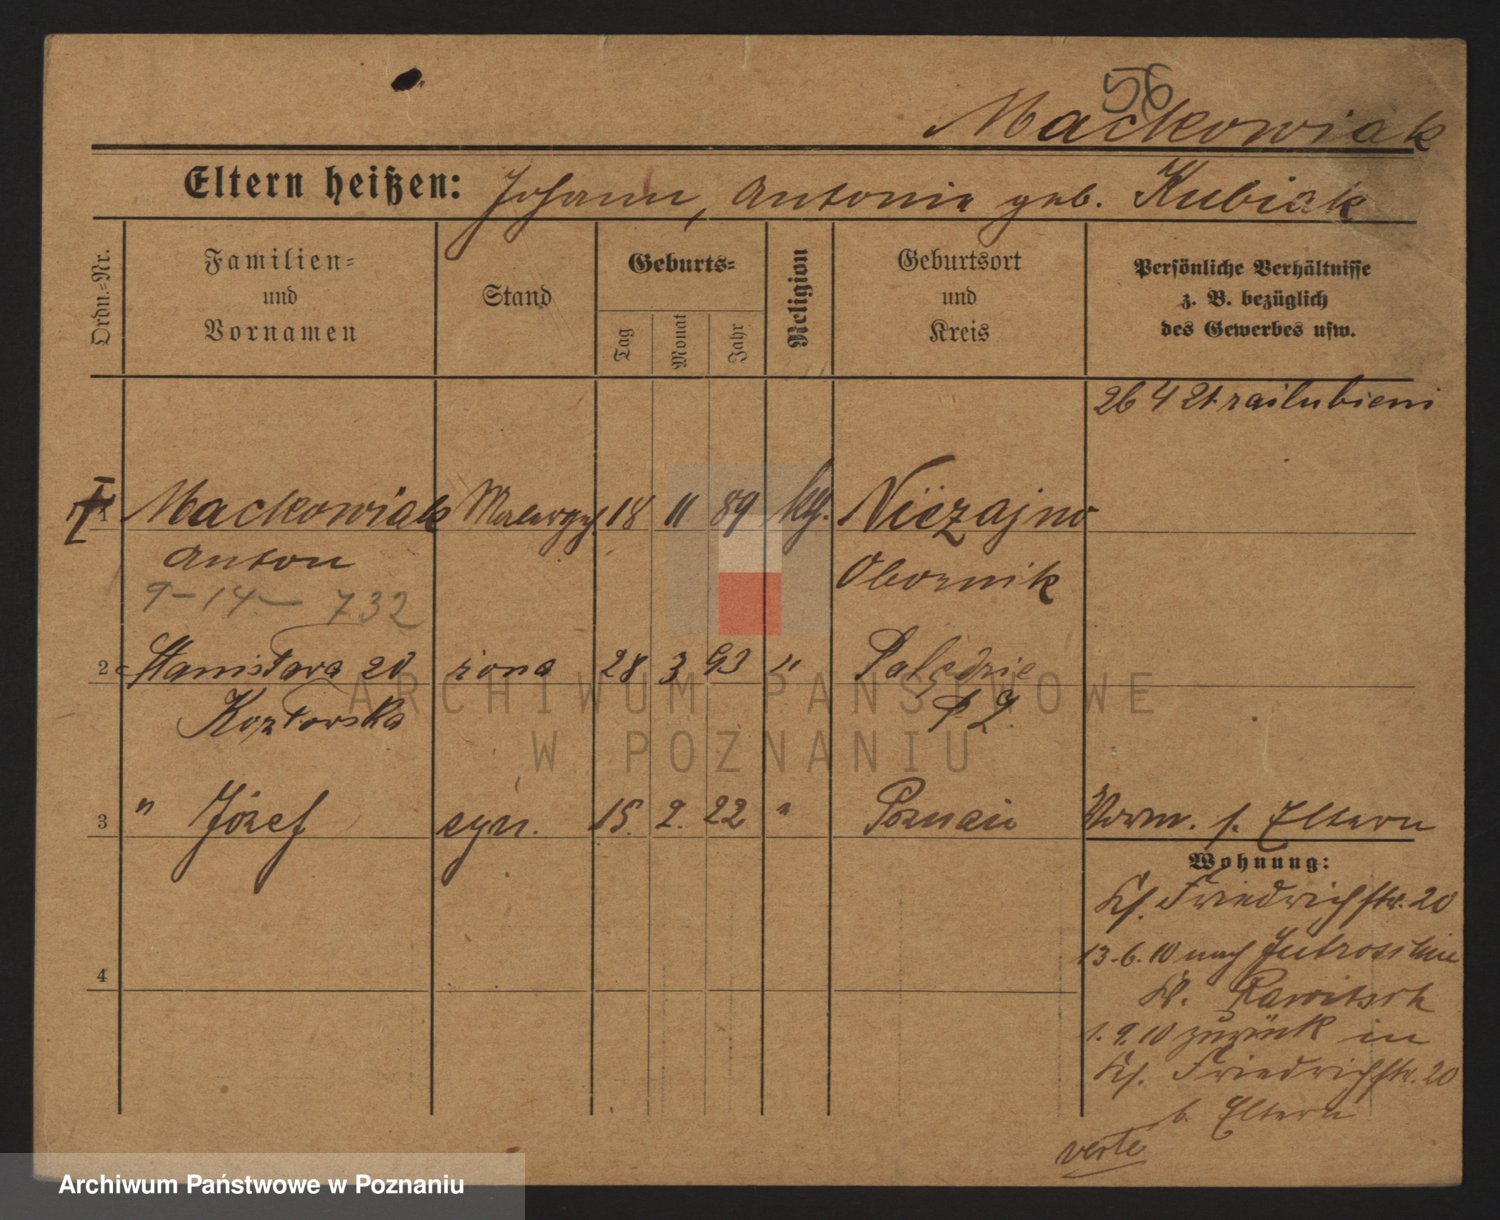 56
Mackowiak
Eltern heißen: Johann, Antonie geb. Kubiak
Ordn.=Nr.
Familien=
und
Vornamen
Stand
Geburts=
Tag
Monat
Jahr
Religion
Geburtsort
und
Kreis
Persönliche Verhältnisse
z. B. bezüglich
des Gewerbes usw.
26 4 21 zaślubieni
1 Mackowiak 18 11 89 kg. Niezajno
Anton Obornik
9-14- 732
2 Stanisława zd żona 28 3 93 " Palędzie
Kozłowska
3 " Józef syn. 15. 2. 22 " Poznań Vorm. s. Eltern
Wohnung:
Friedrichstr. 20
4
13.6.10 nach Jutroschin
Kr. Rawitsch
1.9.10 zurück in
Friedrichstr. 20
b. Eltern
verte
ARCHIWUM PAŃSTWOWE
W POZNANIU
Archiwum Państwowe w Poznaniu